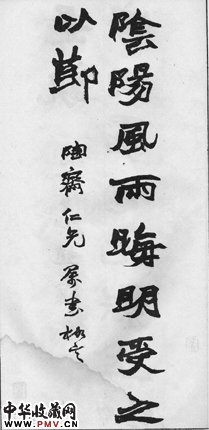 陰陽風雨晦明受之
以節
陶齋仁兄屬書
中华收藏网
www.PMV.cn